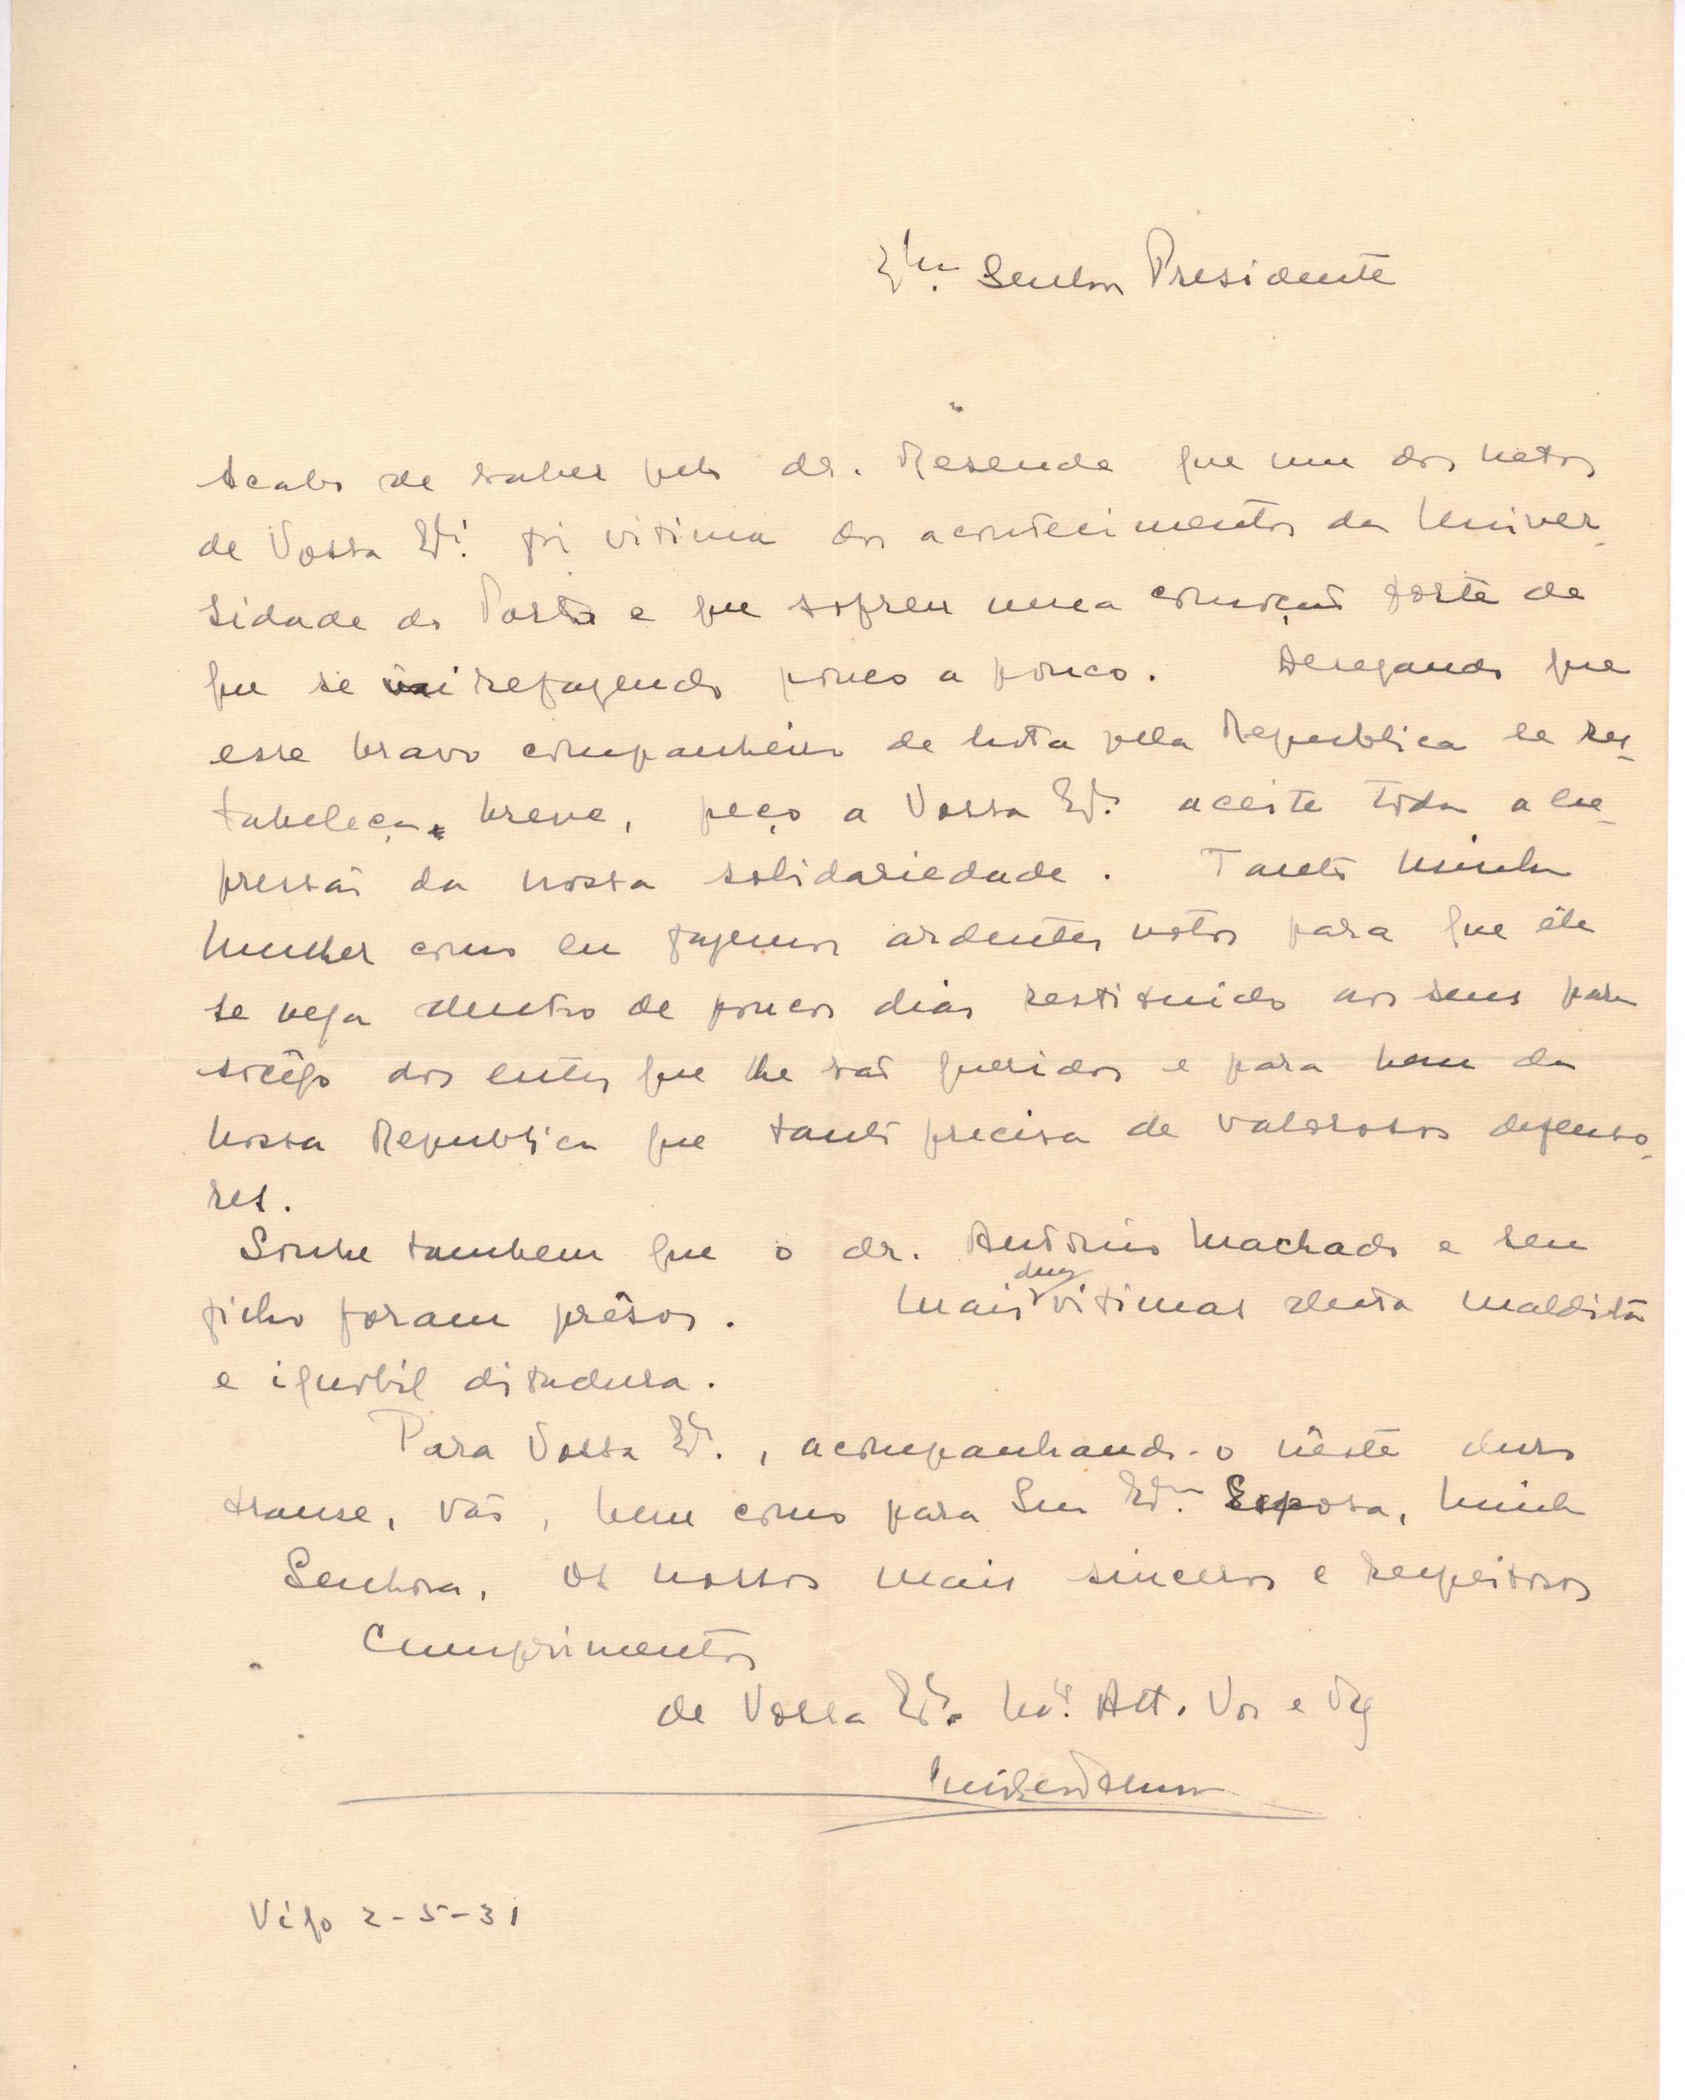 Exmo. Senhor Presidente
Acabo de saber pelo dr. Resende que um dos netos
de Vossa Exª. foi vitima dos acontecimentos da Univer-
sidade do Porto e que sofreu uma comoção forte de
que se vai refazendo pouco a pouco. Desejando que
esse bravo companheiro de luta pela Republica se res-
tabeleça breve, peço a Vossa Exª. aceite toda a ex-
pressão da nossa solidariedade. Tanto minha
mulher como eu fazemos ardentes votos para que êle
se veja dentro de poucos dias restituido aos seus para
socêgo dos entes que lhe são queridos e para bem da
nossa Republica que tanto precisa de valorosos defenso-
res.
Soube tambem que o dr. Antonio Machado e seu
filho foram prêsos. Mais duas vitimas desta maldita
e ignobil ditadura.
Para Vossa Exª., acompanhando-o nêste duro
transe, vão, bem como para Sua Exma. Esposa, minha
Senhora, os nossos mais sinceros e respeitosos
cumprimentos
de Vossa Exª. Mto. Att. Vor e
Vigo 2-5-31